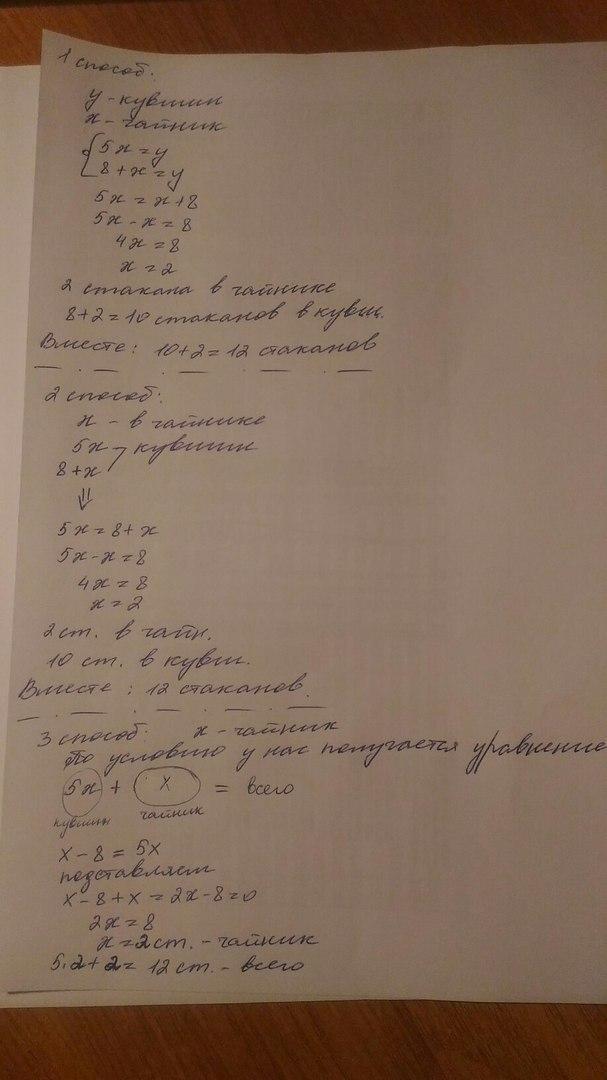 1 способ:
у - кувшин
х - чайник
5х = у
8 + х = у
5х = х + 8
5х - х = 8
4х = 8
х = 2
2 стакана в чайнике
8 + 2 = 10 стаканов в кувш.
Вместе: 10 + 2 = 12 стаканов
2 способ:
х - в чайнике
5х
кувшин
8 + х
⇓
5х = 8 + х
5х - х = 8
4х = 8
х = 2
2 ст. в чайн.
10 ст. в кувш.
Вместе: 12 стаканов.
3 способ: х - чайник
По условию у нас получается уравнение
5х + х = всего
кувшин чайник
х - 8 = 5х
подставляем
х - 8 + х = 2х - 8 = 0
2х = 8
х = 2 ст. - чайник
5.2 + 2 = 12 ст. - всего